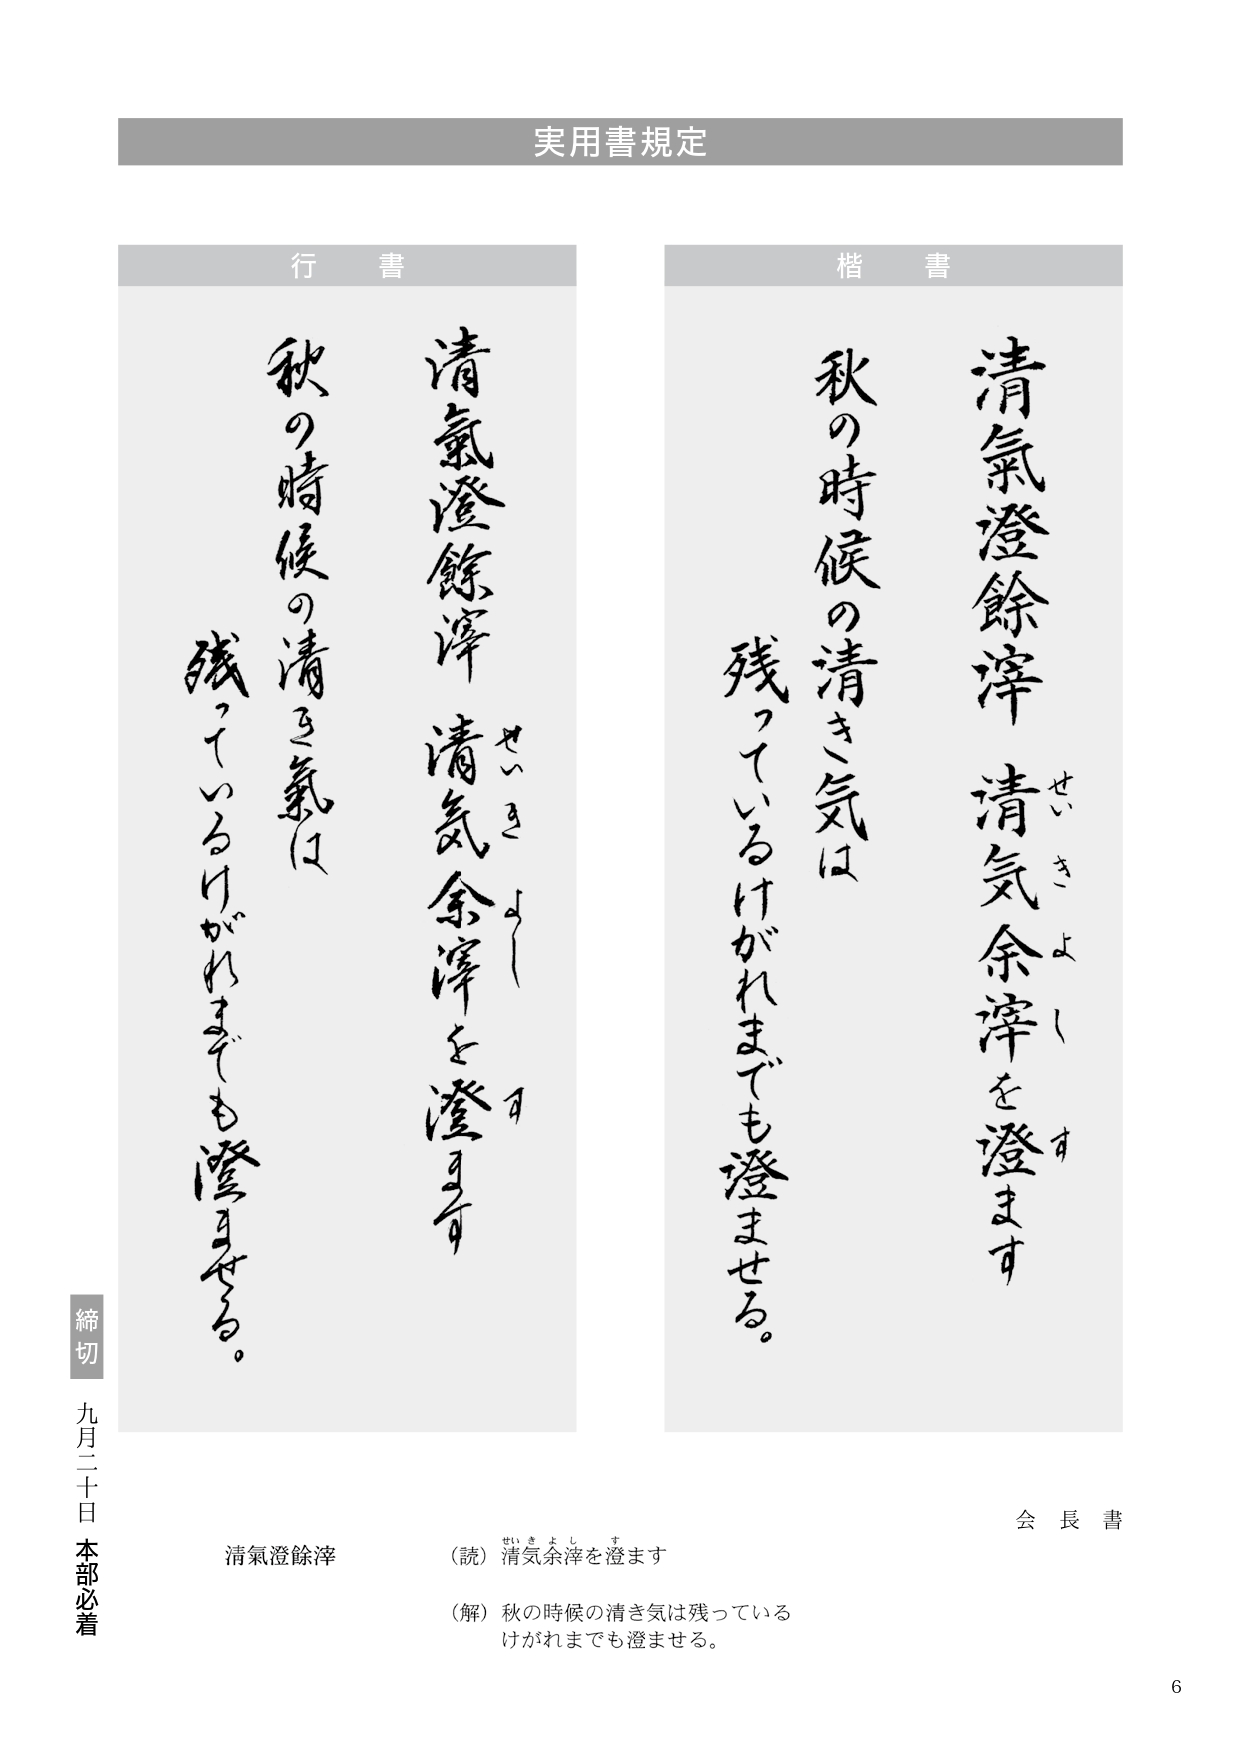 実用書規定
楷書
清氣澄餘滓 清気余滓を澄ます
せい き よ し す
秋の時候の清き気は
残っているけがれまでも澄ませる。
行書
清氣澄餘滓 清気余滓を澄ます
せい き よ し す
秋の時候の清き氣は
残っているけがれまでも澄ませる。
会長書
清氣澄餘滓
せい き よ し す
（読）清気余滓を澄ます
（解）秋の時候の清き気は残っている
けがれまでも澄ませる。
締切 九月二十日 本部必着
6